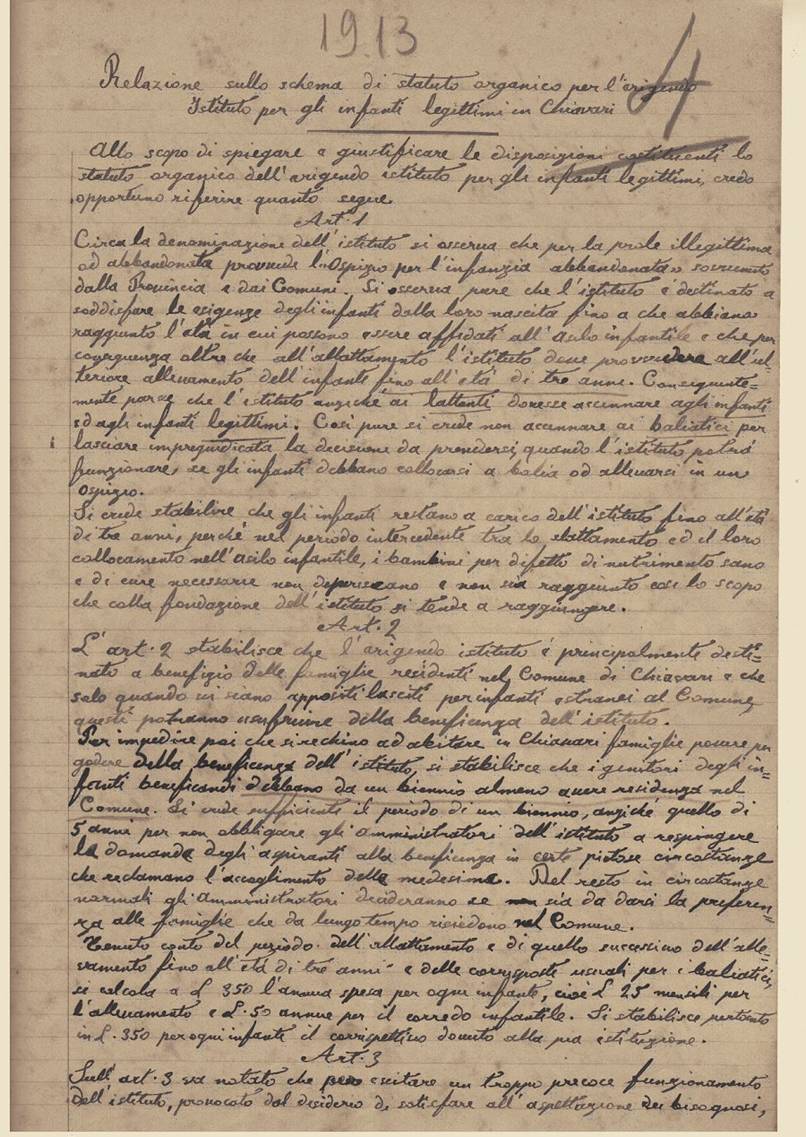 1913
4
Relazione sullo schema di statuto organico per l'erigendo
Istituto per gli infanti legittimi in Chiavari
Allo scopo di spiegare e giustificare le disposizioni costituenti lo
statuto organico dell'erigendo istituto per gli infanti legittimi, credo
opportuno riferire quanto segue.
Art. 1
Circa la denominazione dell'istituto si osserva che per la prole illegittima
od abbandonata provvede l'Ospizio per l'infanzia abbandonata sovvenuto
dalla Provincia e dai Comuni. Si osserva pure che l'istituto è destinato a
soddisfare le esigenze degli infanti dalla loro nascita fino a che abbiano
raggiunto l'età in cui possono essere affidati all'asilo infantile e che per
conseguenza oltre che all'allattamento l'istituto deve provvedere all'ul=
teriore allevamento dell'infanti fino all'età di tre anni. Conseguente=
mente parve che l'istituto anziché ai lattenti dovesse accennare agli infanti
ed agli infanti legittimi. Così pure si crede non accennare ai baliatici per
lasciare impregiudicata la decisione da prendersi, quando l'istituto potrà
funzionare, se gli infanti debbano collocarsi a balia od allevarsi in un
ospizio.
Si crede stabilire che gli infanti restano a carico dell'istituto fino all'età
di tre anni, perché nel periodo intercedente tra lo slattamento ed il loro
collocamento nell'asilo infantile, i bambini per difetto di nutrimento sano
e di cure necessarie non deperiscano e non sia raggiunto così lo scopo
che colla fondazione dell'istituto si tende a raggiungere.
Art. 2
L'art. 2 stabilisce che l'erigendo istituto è principalmente desti=
nato a benefizio delle famiglie residenti nel Comune di Chiavari e che
solo quando vi siano appositi lasciti per infanti estranei al Comune,
questi potranno usufruire della beneficenza dell'istituto.
Per impedire poi che si rechino ad abitare in Chiavari famiglie povere per
godere della beneficenza dell'istituto, si stabilisce che i genitori degli in=
fanti beneficandi debbano da un biennio almeno avere residenza nel
Comune. Si crede sufficienti il periodo di un biennio, anziché quello di
5 anni per non obbligare gli amministratori dell'istituto a respingere
la domanda degli aspiranti alla beneficenza in certe pietose circostanze
che reclamano l'accoglimento delle medesime. Del resto in circostanze
normali gli amministratori decideranno se non sia da darsi la preferen=
za alle famiglie che da lungo tempo risiedono nel Comune.
Tenuto conto del periodo dell'allattamento e di quello successivo dell'alle=
vamento fino all'età di tre anni e delle corrisposte usuali per i baliatici,
si calcola a £ 350 l'annua spesa per ogni infante, cioè £ 25 mensili per
l'allevamento e £. 50 annue per il corredo infantile. Si stabilisce pertanto
in £. 350 per ogni infanti il corrispettivo dovuto alla pia istituzione.
Art. 3
Sull'art. 3 va notato che può esitare un troppo precoce funzionamento
dell'istituto, provocato dal desiderio di satisfare all'aspettazione dei bisognosi,